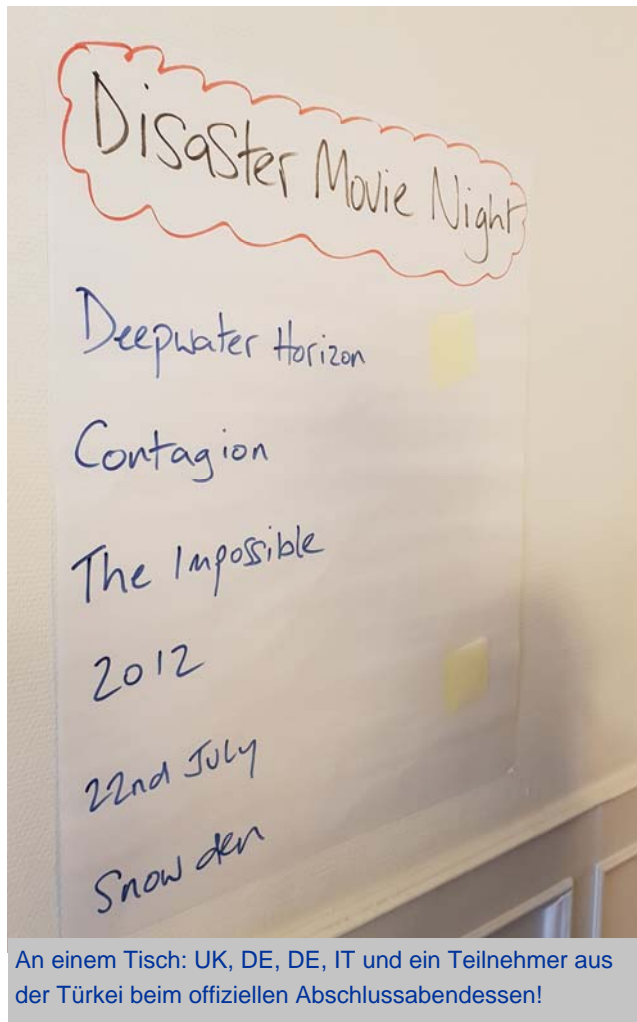 Disaster Movie Night
Deepwater Horizon
Contagion
The Impossible
2012
22nd July
Snowden
An einem Tisch: UK, DE, DE, IT und ein Teilnehmer aus
der Türkei beim offiziellen Abschlussabendessen!